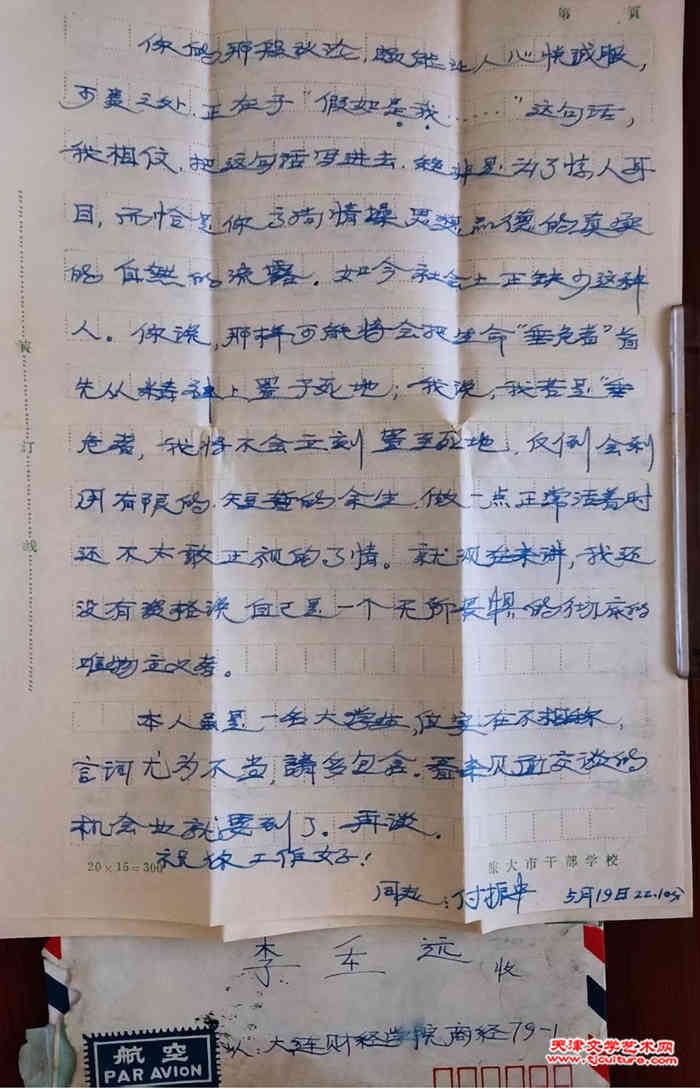 第 页
你的那段议论,颇能让人心悦诚服,
可贵之处,正在于“假如是我……”这句话,
我相信,把这句话写进去,绝非是为了惊人耳
目,而恰是你高尚情操思想品德的真实
的自然的流露。如今社会上正缺少这种
人。你说,那样可能将会把生命“垂危者”首
先从精神上置于死地;我说,我若是“垂
危者,我将不会立刻置至死地,反倒会利
用有限的、短暂的余生,做一点正常活着时
还不太敢正视的事情。就现在来讲,我还
没有资格说自己是一个无所畏惧的彻底的
唯物主义者。
本人虽是一名大学生,但实在不相称,
言词尤为不当,請多包含。看来见面交谈的
机会也就要到了。再谈。
祝你工作好!
20×15=300
旅大市干部学校
同志:付振中 5月19日22.10分
装
订
线
李 远 收
大连财经学院商经79-1
航空
PAR AVION
天津文学艺术网
www.tjculture.com